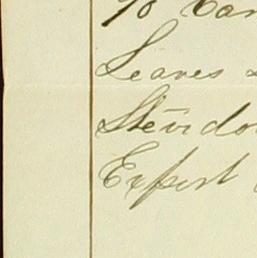 To Can
Leaves
Stevido
Expert